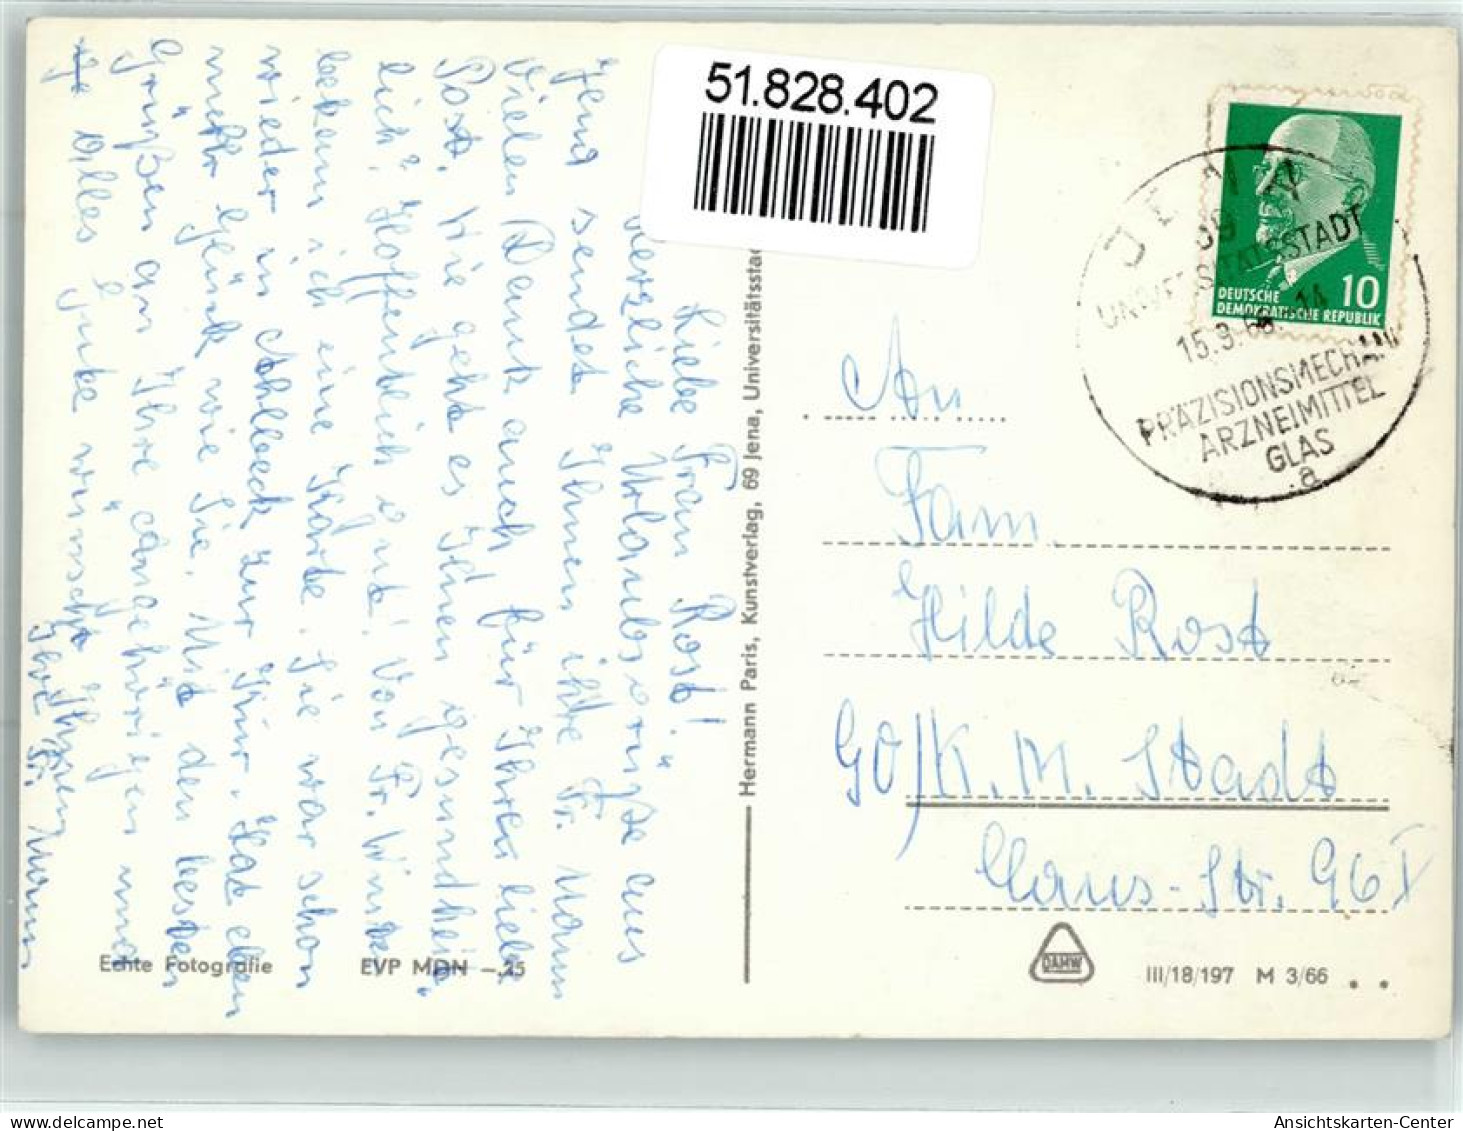 51.828.402
Liebe Frau Rost!
Herzliche Urlaubsgrüße aus
Jena sendet Ihnen ihre Fr. Mann
Vielen Dank auch für Ihre liebe
Post. Wie geht es Ihnen gesundheit-
lich? Hoffentlich gut! Von Fr.
bekam ich eine Karte. Sie war schon
wieder in Ahlbeck zur Kur. Hat eben
mehr Glück wie Sie. Mit den besten
Grüßen an Ihre Angehörigen und
Alles Gute wünscht Ihnen
Ihre Fr. Mann
Echte Fotografie
EVP MDN –,25
Hermann Paris, Kunstverlag, 69 Jena, Universitätsstad
DEUTSCHE
DEMOKRATISCHE REPUBLIK
10
JENA
69
UNIVERSITÄTSSTADT
15.9.66.-14
PRÄZISIONSMECHANIK
ARZNEIMITTEL
GLAS
a
An
Fam.
Hilde Rost
90/K. M. Stadt
Claus-Str. 96 I
DAHW
III/18/197 M 3/66
Ansichtskarten-Center